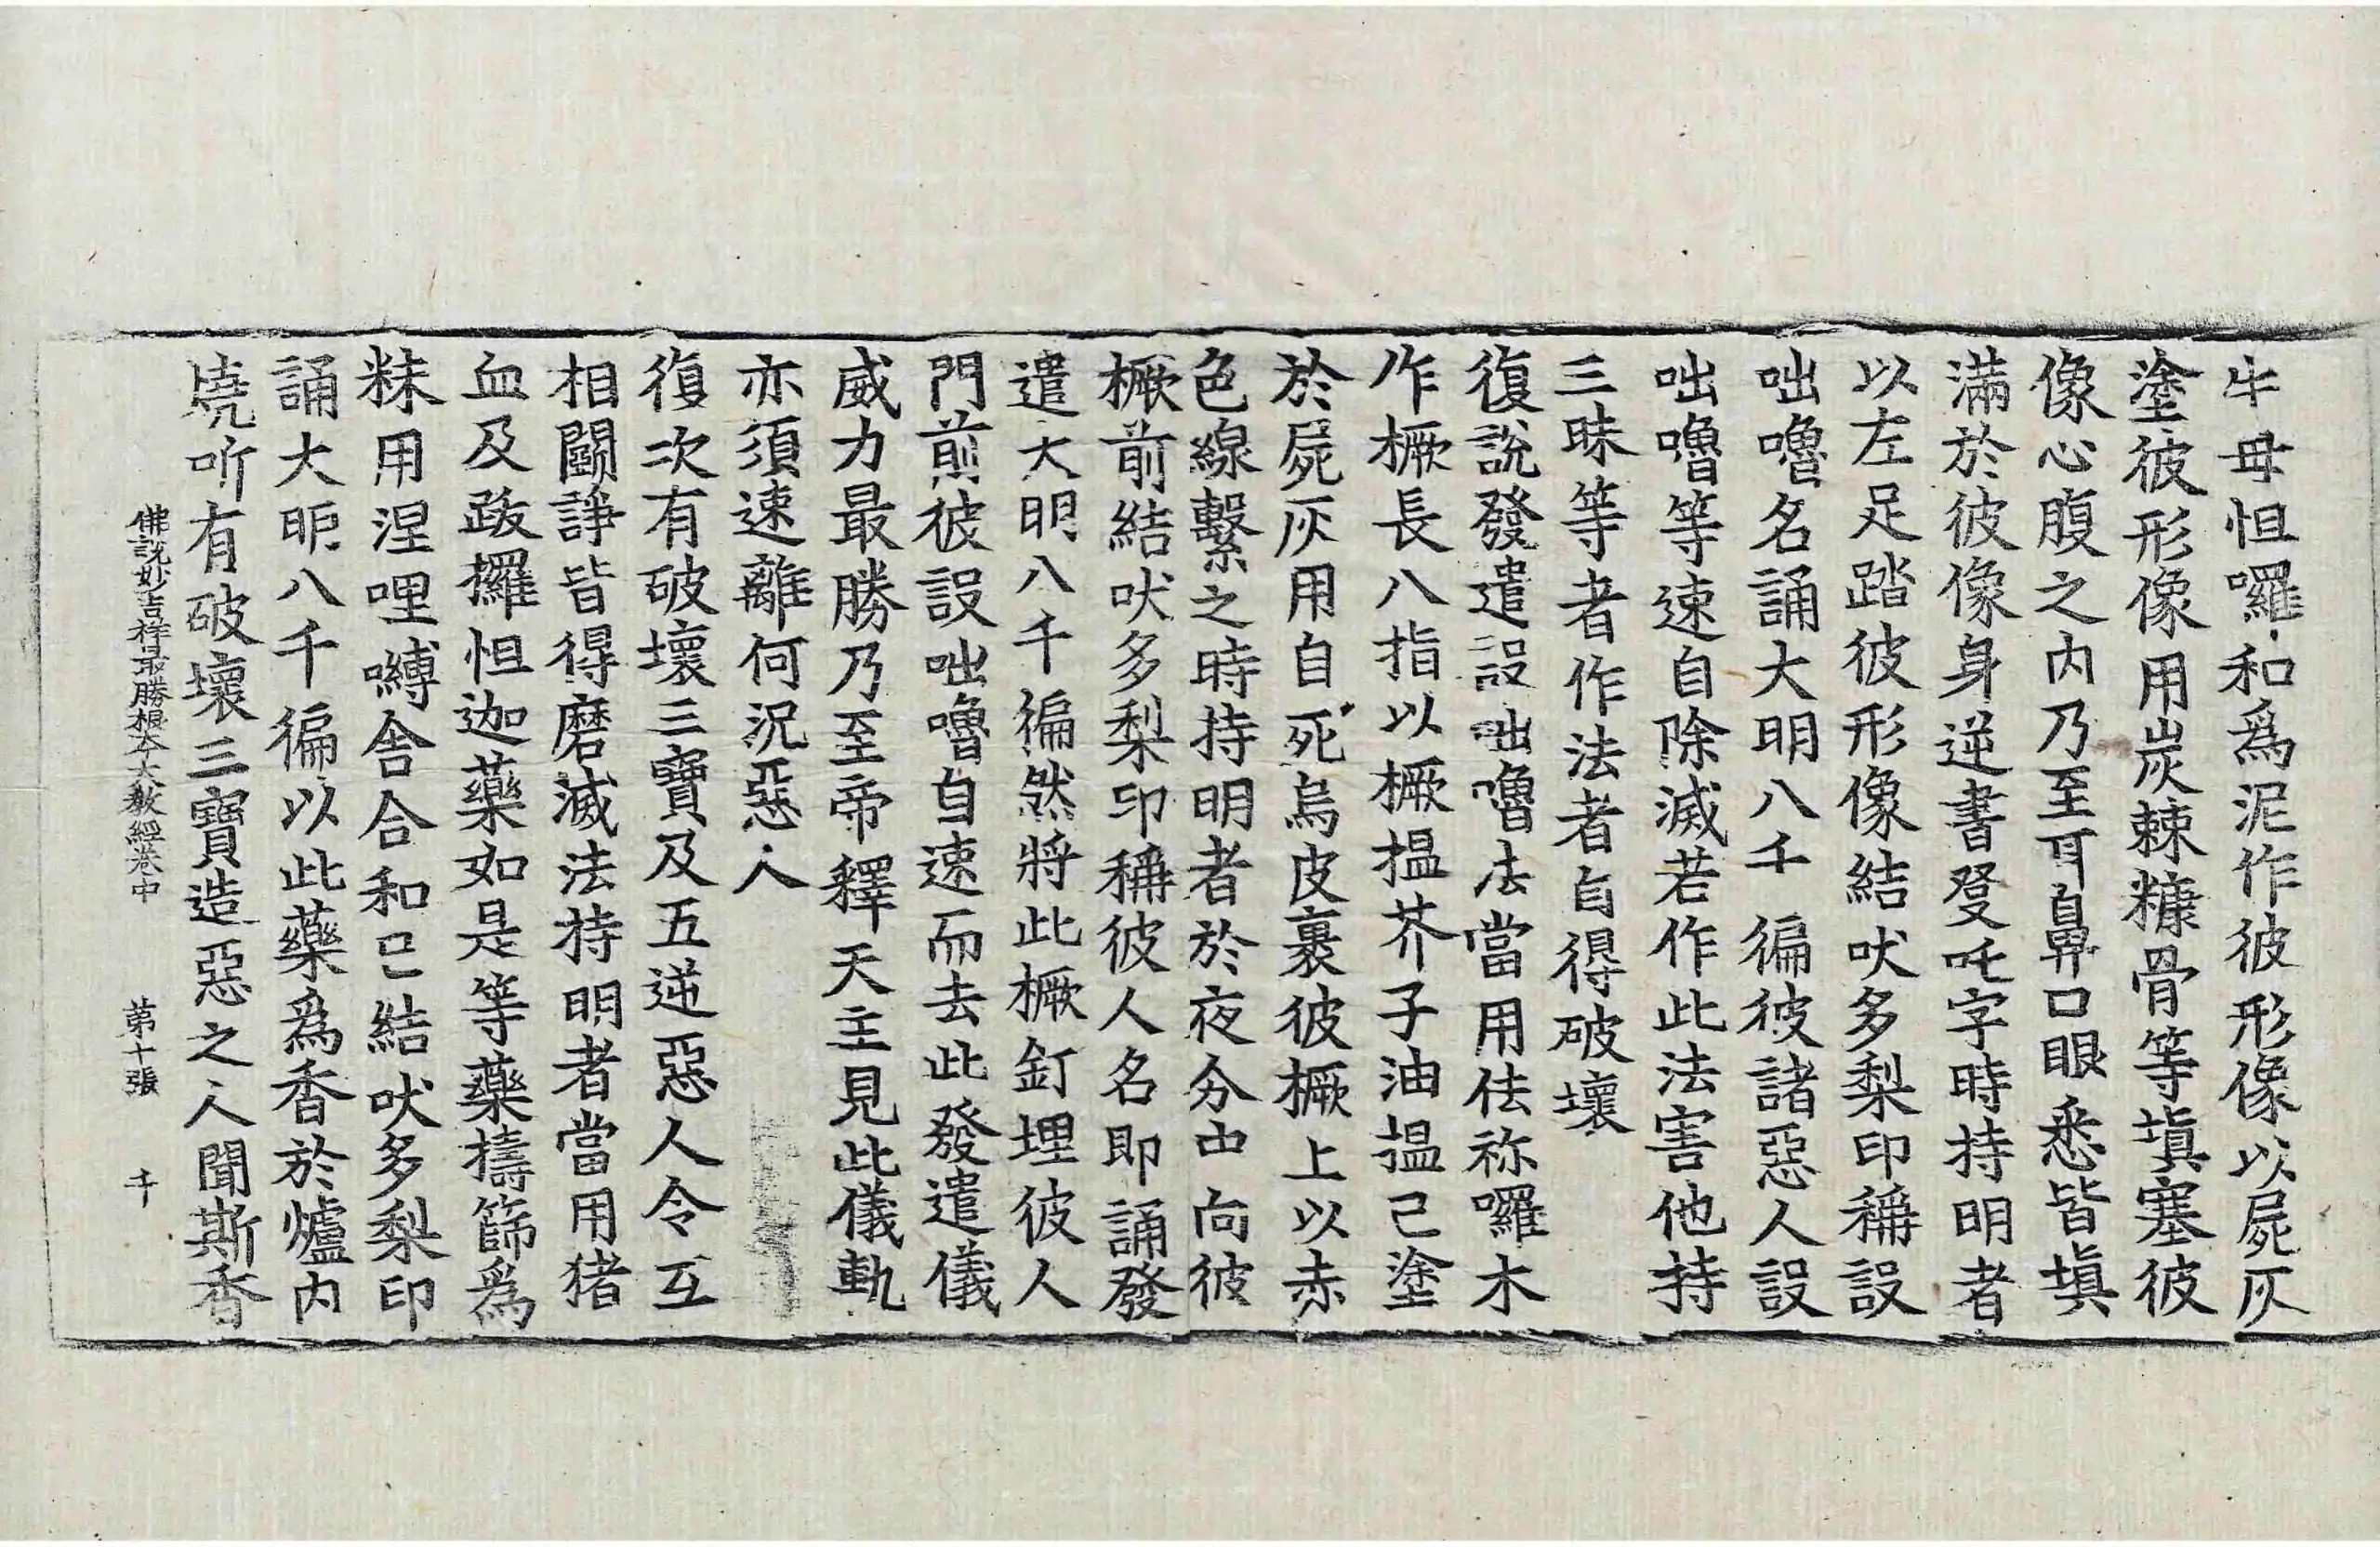 牛毋怛囉和爲泥作彼形像以屍灰
塗彼形像用炭棘糠骨等塡塞彼
像心腹之内乃至耳鼻口眼悉皆塡
滿於彼像身逆書癹吒字時持明者
以左足踏彼形像結吠多梨印稱設
咄嚕名誦大明八千徧彼諸惡人設
咄嚕等速自除滅若作此法害他持
三昧等者作法者自得破壞
復說發遣設咄嚕法當用佉祢囉木
作橛長八指以橛揾芥子油揾已塗
於屍灰用自死烏皮裹彼橛上以赤
色線繫之時持明者於夜分中向彼
橛前結吠多梨印稱彼人名即誦發
遣大明八千徧然將此橛釘埋彼人
門前彼設咄嚕自速而去此發遣儀
威力最勝乃至帝釋天主見此儀軌
亦須速離何況惡人
復次有破壞三寶及五逆惡人令互
相鬭諍皆得磨滅法持明者當用猪
血及跋攞怛迦藥如是等藥擣篩爲
粖用涅哩嚩舍合和已結吠多梨印
誦大明八千徧以此藥爲香於爐内
燒所有破壞三寶造惡之人聞斯香
佛說妙吉祥最勝根本大教經卷中 苐十張 千